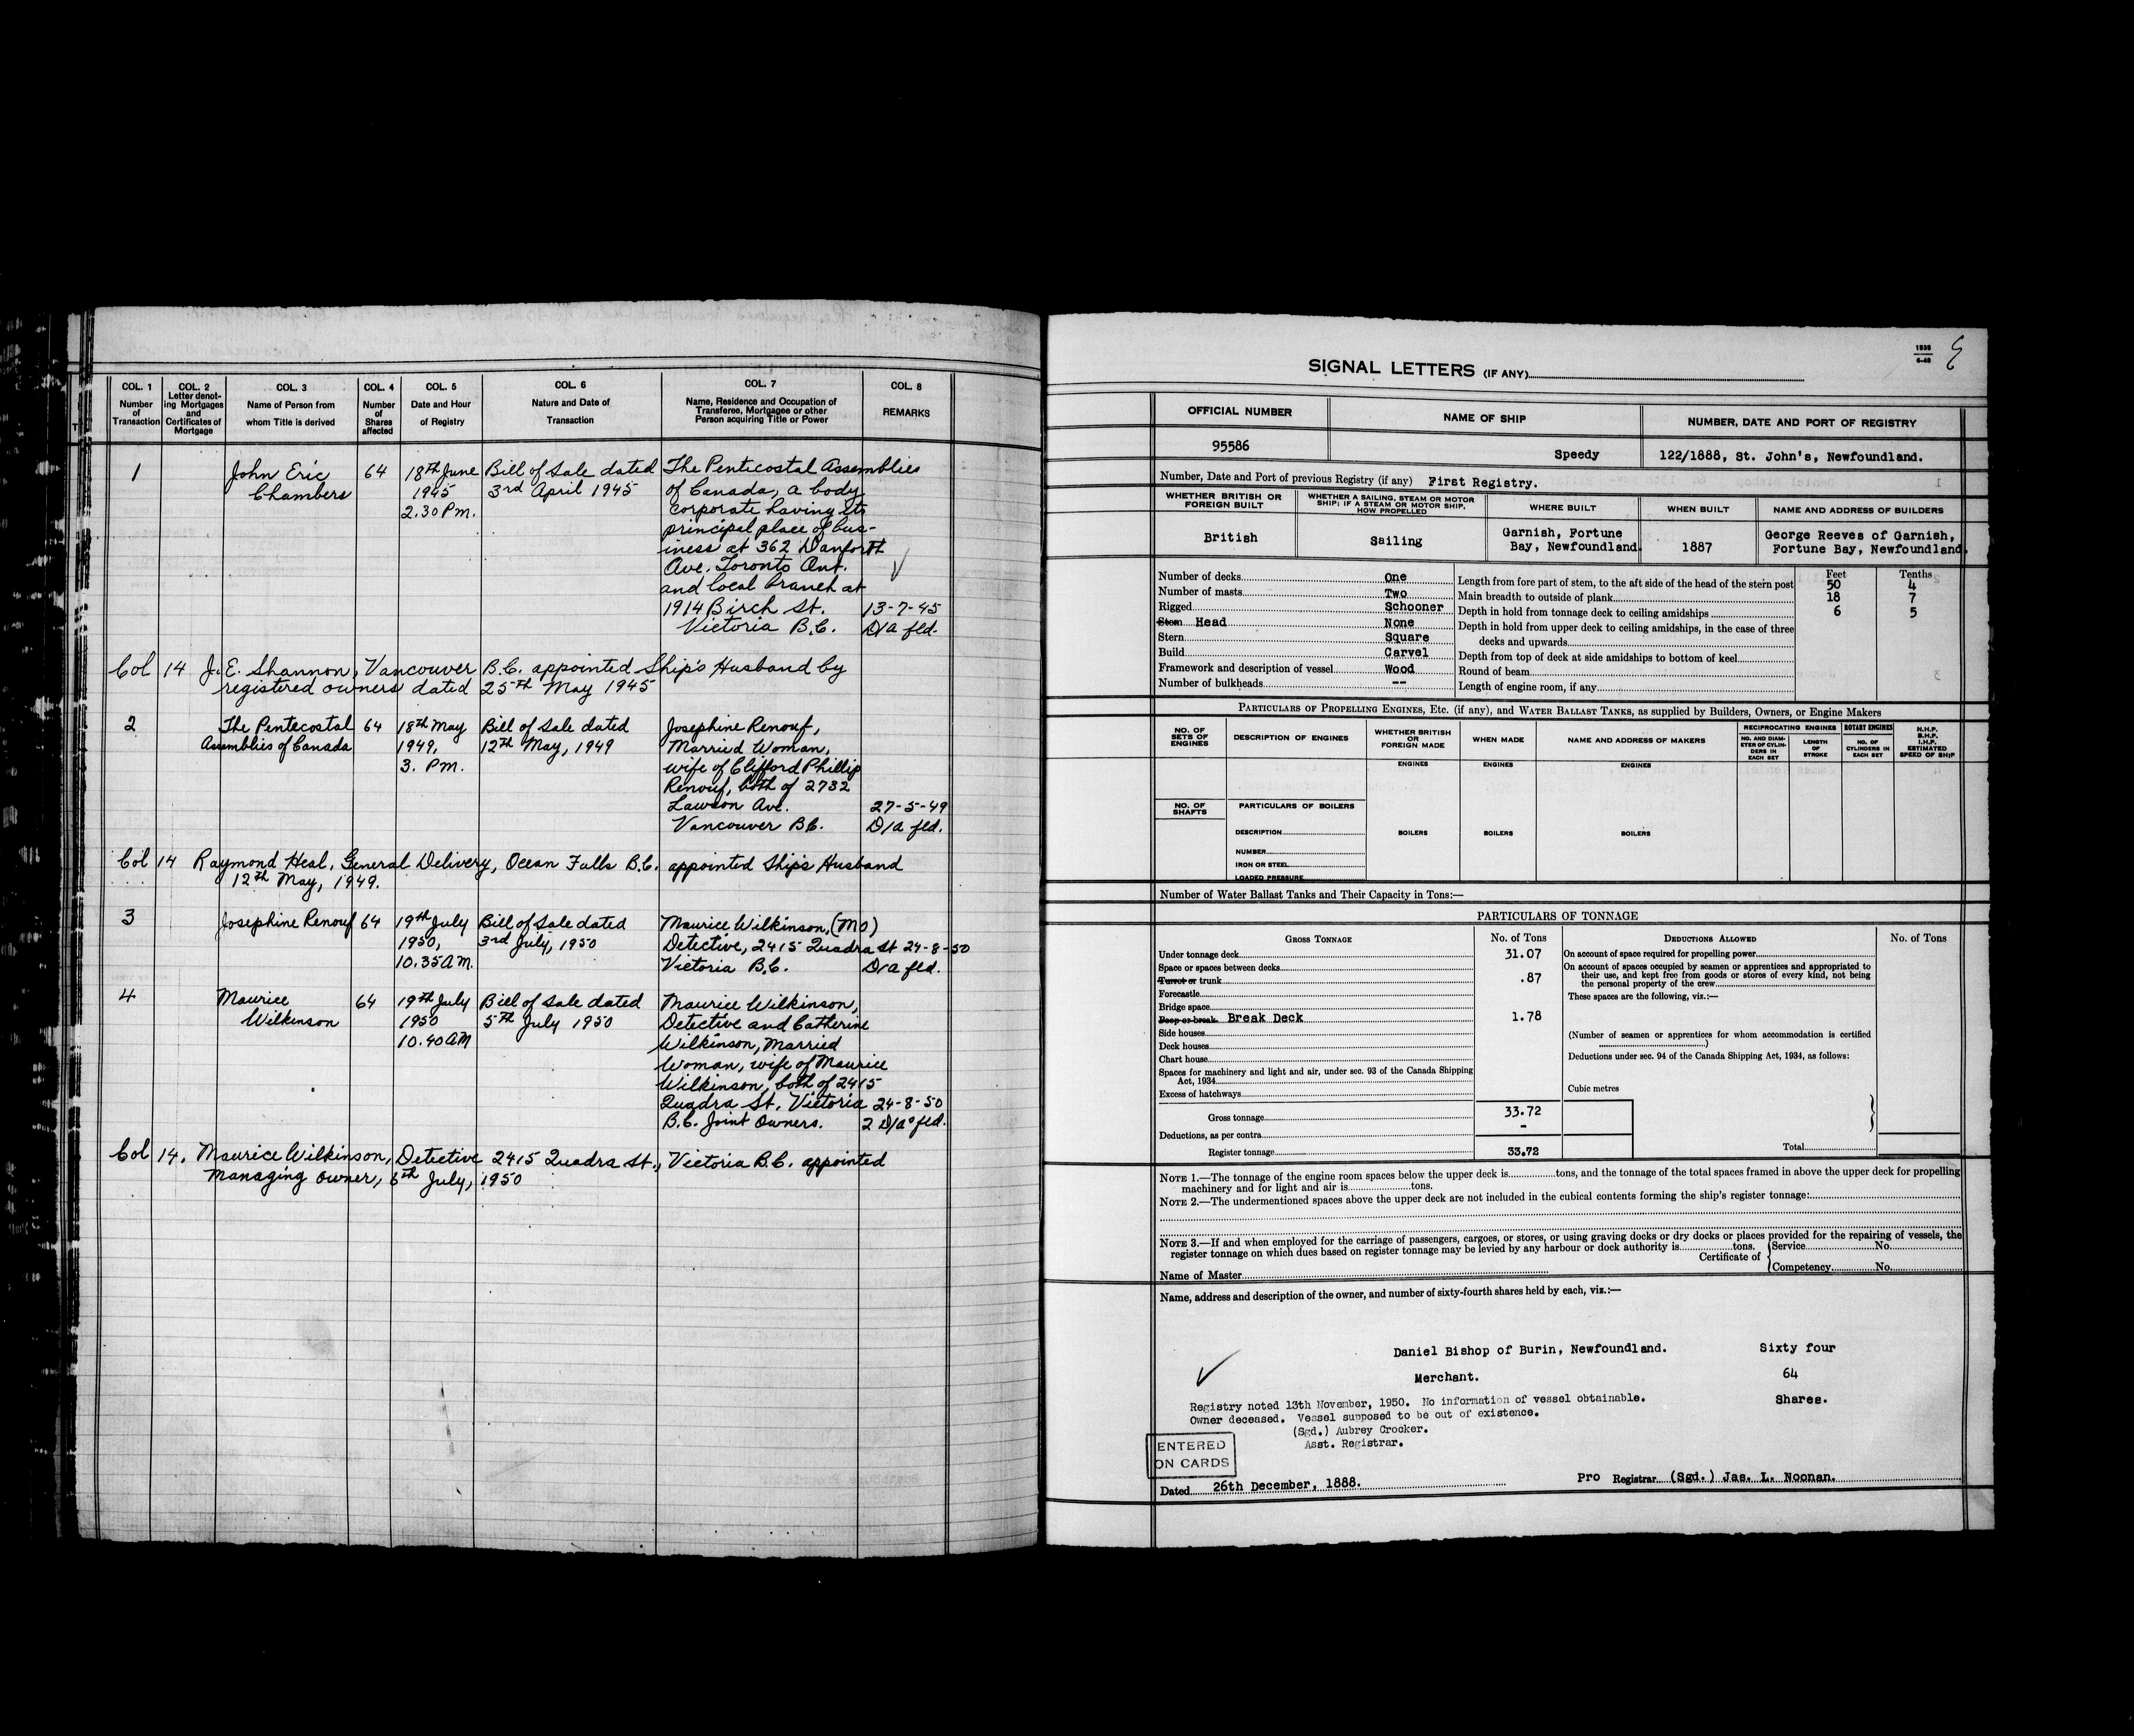 COL. 1 COL. 2 COL. 3 COL. 4 COL. 5 COL. 6 COL. 7 COL. 8
Number of Transaction
Letter denoting Mortgages and Certificates of Mortgage
Name of Person from whom Title is derived
Number of Shares affected
Date and Hour of Registry
Nature and Date of Transaction
Name, Residence and Occupation of Transferee, Mortgagee or other Person acquiring Title or Power
REMARKS
1 John Eric 64 18th June Bill of Sale dated The Penticostal Assemblies
Chambers 1945 3rd April 1945 of Canada, a body
2.30 P.m. corporate having its
principal place of bus-
iness at 362 Danforth
Ave. Toronto Ont.
and local branch at
1914 Birch St. 13-7-45
Victoria B.C. D/a fld.
Col 14 J. E. Shannon, Vancouver B.C. appointed Ship's Husband by
registered owners dated 25th May 1945
2 The Pentecostal 64 18th May Bill of Sale dated Josephine Renouf,
Assemblies of Canada 1949, 12th May, 1949 Married Woman,
3. P.m. wife of Clifford Phillip
Renouf, both of 2732
Lawson Ave. 27-5-49
Vancouver B.C. D/a fld.
Col 14 Raymond Heal, General Delivery, Ocean Falls B.C. appointed Ship's Husband
12th May, 1949.
3 Josephine Renouf 64 19th July Bill of Sale dated Maurice Wilkinson, (MO)
1950, 3rd July, 1950 Detective, 2415 Quadra St 24-8-50
10.35 A.M. Victoria B.C. D/a fld.
4 Maurice 64 19th July Bill of Sale dated Maurice Wilkinson,
Wilkinson 1950 5th July 1950 Detective and Catherine
10.40 AM Wilkinson, Married
Woman, wife of Maurice
Wilkinson, both of 2415
Quadra St. Victoria 24-8-50
B.C. Joint Owners. 2 D/as fld.
Col 14. Maurice Wilkinson, Detective 2415 Quadra St., Victoria B.C. appointed
Managing owner, 6th July, 1950
1335
6-46
SIGNAL LETTERS (IF ANY)
OFFICIAL NUMBER NAME OF SHIP NUMBER, DATE AND PORT OF REGISTRY
95586 Speedy 122/1888, St. John's, Newfoundland.
Number, Date and Port of previous Registry (if any) First Registry.
WHETHER BRITISH OR FOREIGN BUILT
WHETHER A SAILING, STEAM OR MOTOR SHIP; IF A STEAM OR MOTOR SHIP, HOW PROPELLED
WHERE BUILT WHEN BUILT NAME AND ADDRESS OF BUILDERS
British Sailing Garnish, Fortune Bay, Newfoundland. 1887 George Reeves of Garnish, Fortune Bay, Newfoundland.
Number of decks One
Number of masts Two
Rigged Schooner
Stem Head None
Stern Square
Build Carvel
Framework and description of vessel Wood
Number of bulkheads --
Feet Tenths
Length from fore part of stem, to the aft side of the head of the stern post 50 4
Main breadth to outside of plank 18 7
Depth in hold from tonnage deck to ceiling amidships 6 5
Depth in hold from upper deck to ceiling amidships, in the case of three
decks and upwards
Depth from top of deck at side amidships to bottom of keel
Round of beam
Length of engine room, if any
PARTICULARS OF PROPELLING ENGINES, Etc. (if any), and WATER BALLAST TANKS, as supplied by Builders, Owners, or Engine Makers
NO. OF SETS OF ENGINES
DESCRIPTION OF ENGINES
WHETHER BRITISH OR FOREIGN MADE
WHEN MADE
NAME AND ADDRESS OF MAKERS
RECIPROCATING ENGINES ROTARY ENGINES
NO. AND DIAMETER OF CYLINDERS IN EACH SET
LENGTH OF STROKE
NO. OF CYLINDERS IN EACH SET
N.H.P. B.H.P. I.H.P. ESTIMATED SPEED OF SHIP
ENGINES ENGINES ENGINES
NO. OF SHAFTS
PARTICULARS OF BOILERS
DESCRIPTION BOILERS BOILERS BOILERS
NUMBER
IRON OR STEEL
LOADED PRESSURE
Number of Water Ballast Tanks and Their Capacity in Tons:—
PARTICULARS OF TONNAGE
GROSS TONNAGE No. of Tons DEDUCTIONS ALLOWED No. of Tons
Under tonnage deck 31.07
Space or spaces between decks
Turret or trunk .87
Forecastle
Bridge space
Poop or break Break Deck 1.78
Side houses
Deck houses
Chart house
Spaces for machinery and light and air, under sec. 93 of the Canada Shipping
Act, 1934
Excess of hatchways
Gross tonnage 33.72
Deductions, as per contra -
Register tonnage 33.72
On account of space required for propelling power
On account of spaces occupied by seamen or apprentices and appropriated to
their use, and kept free from goods or stores of every kind, not being
the personal property of the crew
These spaces are the following, viz.:—
(Number of seamen or apprentices for whom accommodation is certified
)
Deductions under sec. 94 of the Canada Shipping Act, 1934, as follows:
Cubic metres
Total
NOTE 1.—The tonnage of the engine room spaces below the upper deck is tons, and the tonnage of the total spaces framed in above the upper deck for propelling
machinery and for light and air is tons.
NOTE 2.—The undermentioned spaces above the upper deck are not included in the cubical contents forming the ship's register tonnage:
NOTE 3.—If and when employed for the carriage of passengers, cargoes, or stores, or using graving docks or dry docks or places provided for the repairing of vessels, the
register tonnage on which dues based on register tonnage may be levied by any harbour or dock authority is tons.
Certificate of Service No.
Competency No.
Name of Master
Name, address and description of the owner, and number of sixty-fourth shares held by each, viz.:—
Daniel Bishop of Burin, Newfoundland. Sixty four
Merchant. 64
Registry noted 13th November, 1950. No information of vessel obtainable. Shares.
Owner deceased. Vessel supposed to be out of existence.
(Sgd.) Aubrey Crocker.
Asst. Registrar.
ENTERED
ON CARDS
Dated 26th December, 1888. Pro Registrar (Sgd.) Jas. L. Noonan.